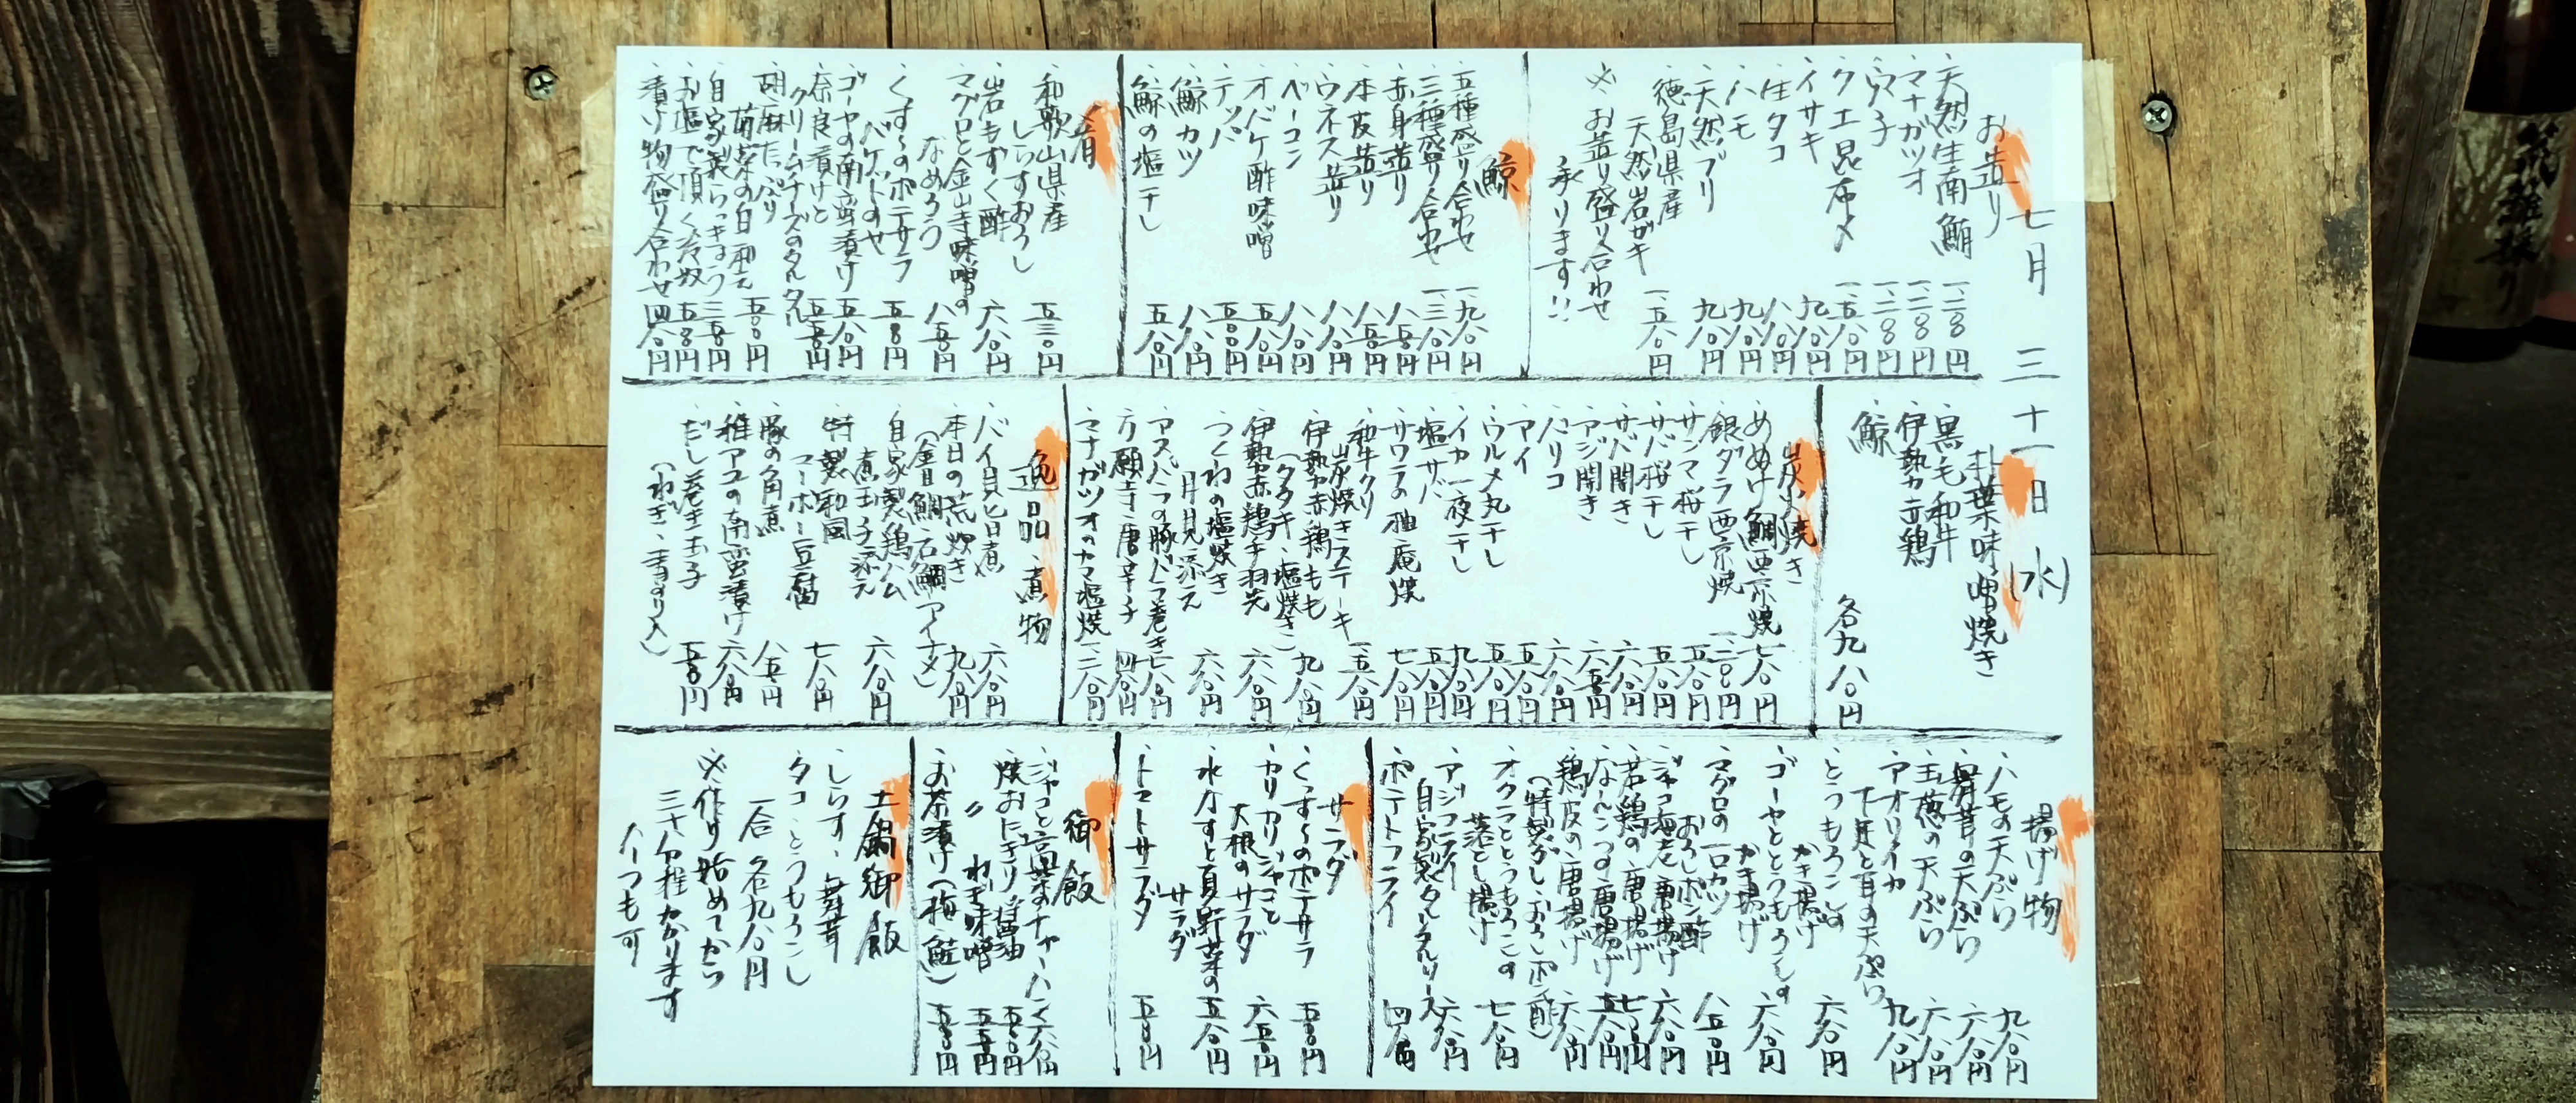 七月三十一日(水)
お造り
・天然生南鮪 一、二八〇円
・マナガツオ 一、二八〇円
・クエ昆布〆 一、五八〇円
・イサキ 九八〇円
・生タコ 八八〇円
・ハモ 九八〇円
・天然ブリ 九八〇円
・徳島県産
天然岩ガキ 一、五八〇円
※お造り盛り合わせ
承ります!!
鯨
・五種盛り合わせ 一、九八〇円
・三種盛り合わせ 一、三八〇円
・赤身造り 八五〇円
・本皮造り 八五〇円
・ウネス造り 八八〇円
・ベーコン 八八〇円
・オバケ酢味噌 五八〇円
・テッパ
・鯨カツ 八八〇円
・鯨の塩干し 五八〇円
肴
・和歌山県産
しらすおろし 五三〇円
・岩もずく酢 六八〇円
・マグロと金山寺味噌の
なめろう 八五〇円
・くすくすのポテサラ
バケットのせ
・ゴーヤの南蛮漬け 五八〇円
・奈良漬けと
クリームチーズのタルタル
・胡麻たっぷり
菊菜の白和え
・自家製らっきょう 三五〇円
・お塩で頂く冷奴
・漬け物盛り合わせ 四八〇円
朴葉味噌焼き
・黒毛和牛
・伊勢赤鶏
・鯨
各九八〇円
炭火焼き
・めぬけ鯛西京焼
・銀ダラ西京焼
・サンマ桜干し 五八〇円
・サバ桜干し
・サバ開き 六八〇円
・アジ開き
・ハリコ 六八〇円
・アイ
・ウルメ丸干し 五八〇円
・イカ一夜干し 九八〇円
・塩サバ
・サワラの柚庵焼 七八〇円
・和牛クリ
炭焼きステーキ 一、五八〇円
・伊勢赤鶏もも
(タタキ・塩焼き) 九八〇円
・伊勢赤鶏手羽先 六八〇円
・つくねの塩焼き
月見添え 六八〇円
・アスパラの豚バラ巻き 七八〇円
・万願寺唐辛子 四八〇円
・マナガツオのカマ塩焼 一、二八〇円
逸品・煮物
・バイ貝旨煮 六八〇円
・本日の荒炊き 九八〇円
(金目鯛・石鯛・アイナメ)
・自家製鶏ハム
煮玉子添え 六八〇円
・特製和風
マーボー豆腐 七八〇円
・豚の角煮
・稚アユの南蛮漬け 六八〇円
・だし巻き玉子
(ねぎ・青のり入)
揚げ物
・ハモの天ぷら 九八〇円
・舞茸の天ぷら 六八〇円
・玉葱の天ぷら 六八〇円
・アオリイカ
下足と耳の天ぷら 九八〇円
・とうもろこしの
かき揚げ 六八〇円
・ゴーヤととうもろこしの
かき揚げ 六八〇円
・マグロの一口カツ
おろしポン酢 八五〇円
・ジャコ海老唐揚げ 六八〇円
・若鶏の唐揚げ 七八〇円
・なんこつの唐揚げ 五八〇円
・鶏皮の唐揚げ 六八〇円
(特製だし・おろしポン酢)
・オクラととうもろこしの
落とし揚げ 七八〇円
・アジフライ
自家製タルタルソース 六八〇円
・ポテトフライ
サラダ
・くすくすのポテサラ
・カリカリジャコと
大根のサラダ 六五〇円
・水ナスと夏野菜の
サラダ 五八〇円
・トマトサラダ
御飯
・ジャコと高菜のチャーハン 六八〇円
・焼おにぎり 醤油
〃 ねぎ味噌
・お茶漬け(梅・鮭)
土鍋御飯
・しらす・舞茸
・タコ・とうもろこし
一合 各九八〇円
※作り始めてから
三十分程かかります